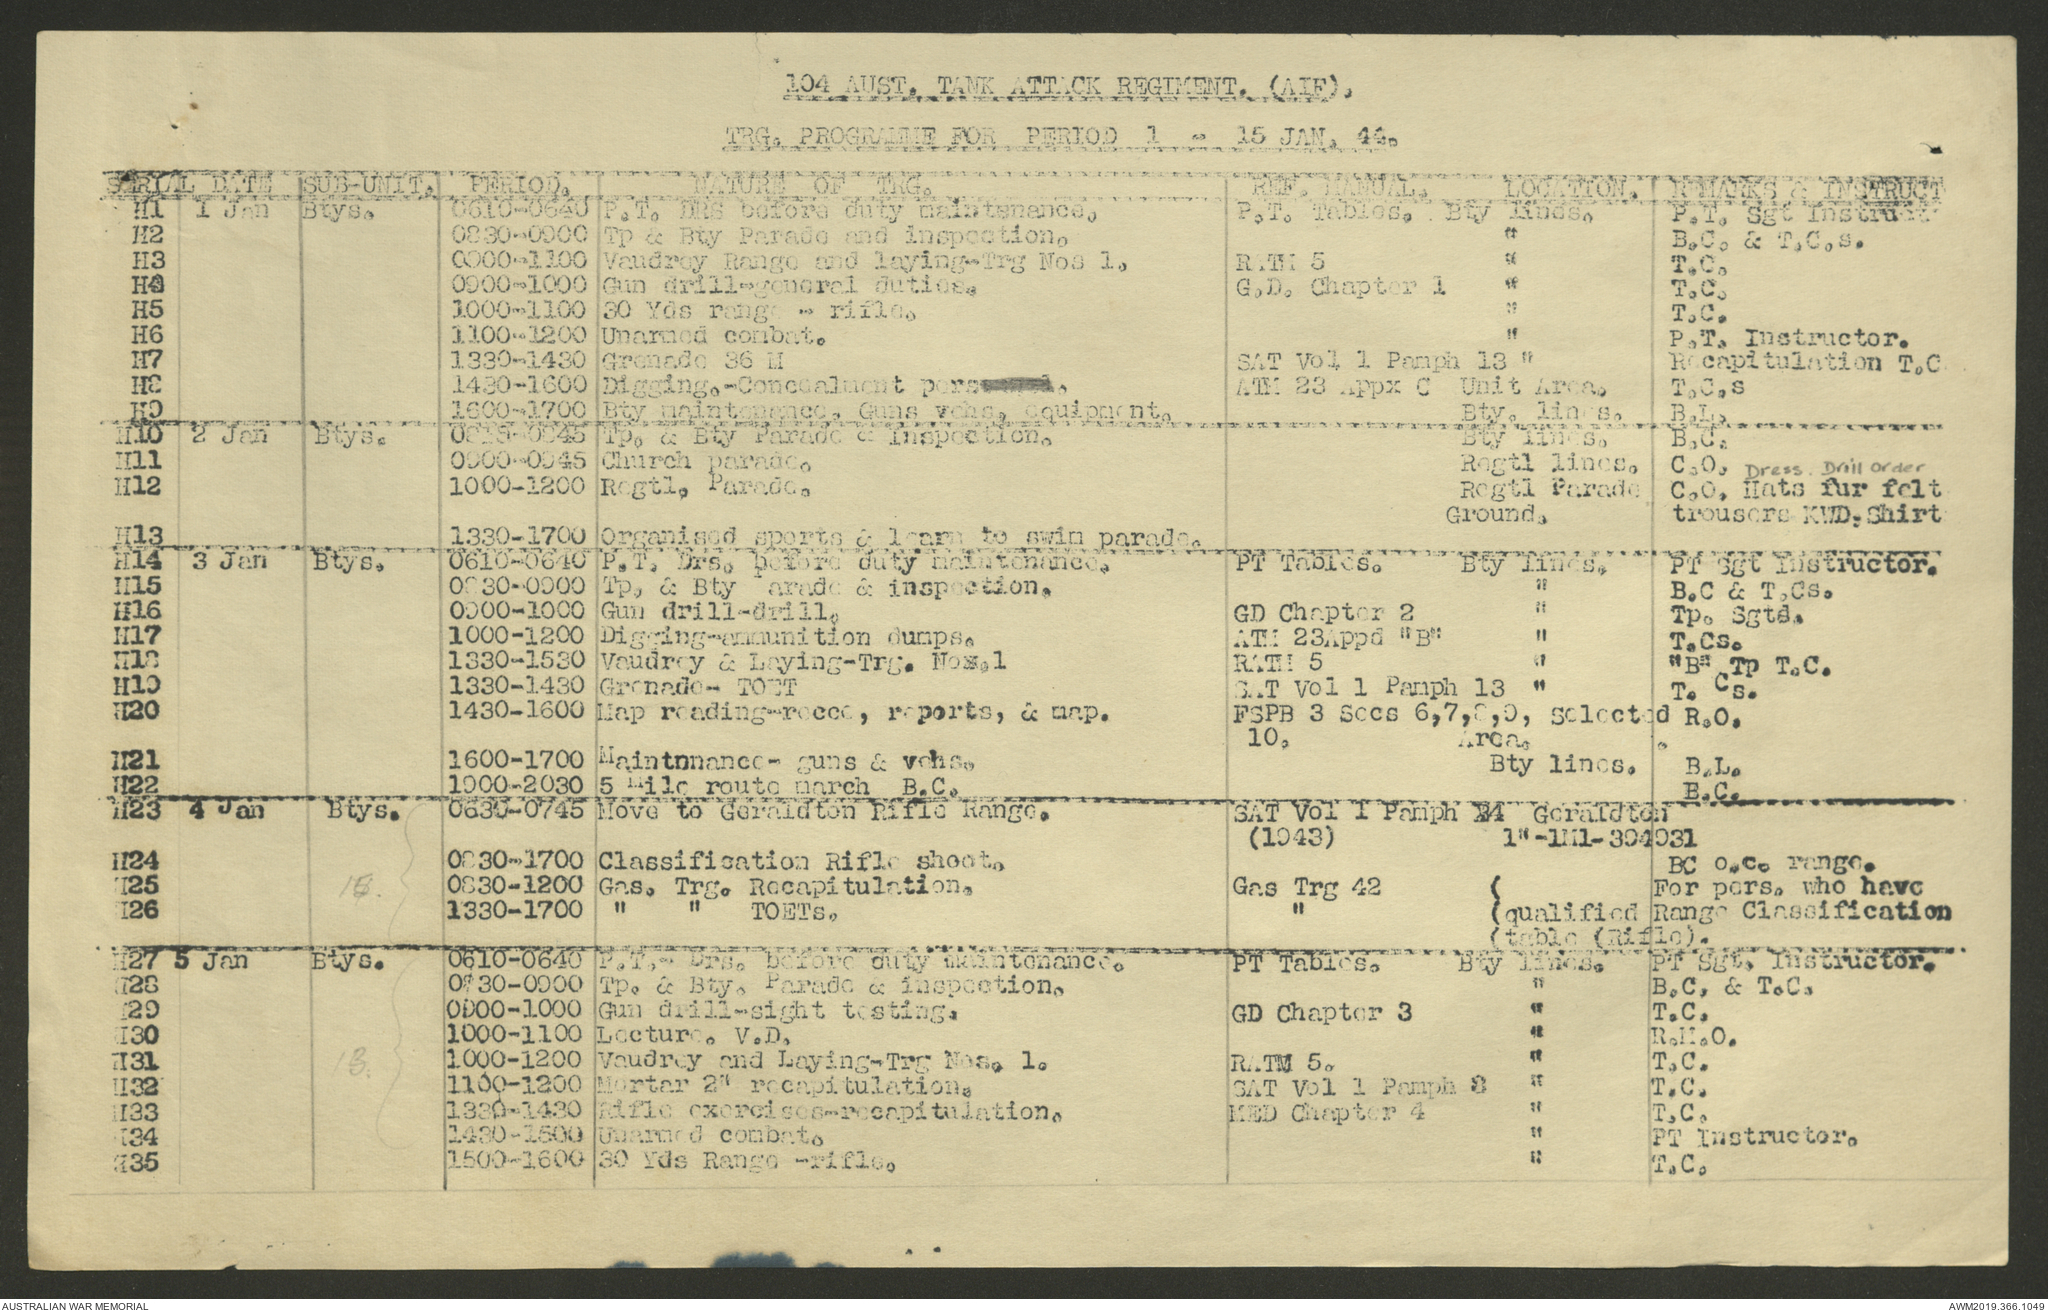 104 AUST. TANK ATTACK REGIMENT. (AIF).
TRG. PROGRAMME FOR PERIOD 1 - 15 JAN. 44.
SERIAL DATE SUB-UNIT. PERIOD. NATURE OF TRG. REF. MANUAL. LOCATION. REMARKS & INSTRUCT
H1 1 Jan Btys. 0610-0640 P.T. DRS before duty maintenance. P.T. Tables. Bty lines. P.T. Sgt Instruct
H2 0830-0900 Tp & Bty Parade and inspection. " B.C. & T.C.s.
H3 0900-1100 Vaudrey Range and laying-Trg Nos 1. RATM 5 " T.C.
H4 0900-1000 Gun drill-general duties. G.D. Chapter 1 " T.C.
H5 1000-1100 30 Yds range - rifle. " T.C.
H6 1100-1200 Unarmed combat. " P.T. Instructor.
H7 1330-1430 Grenade 36 M SAT Vol 1 Pamph 13 " Recapitulation T.C
H8 1430-1600 Digging.-Concealment pers. ATM 23 Appx C Unit Area. T.C.s
H9 1600-1700 Bty maintenance. Guns vehs. equipment. Bty. lines. B.L.
H10 2 Jan Btys. 0815-0845 Tp. & Bty Parade & Inspection. Bty lines. B.C.
H11 0900-0945 Church parade. Regtl lines. C.O. Dress. Drill Order
H12 1000-1200 Regtl. Parade. Regtl Parade C.O. Hats fur felt
Ground. trousers KWD. Shirt
H13 1330-1700 Organised sports & learn to swim parade.
H14 3 Jan Btys. 0610-0640 P.T. Drs. before duty maintenance. PT Tables. Bty lines. PT Sgt Instructor.
H15 0830-0900 Tp. & Bty Parade & inspection. " B.C & T.Cs.
H16 0900-1000 Gun drill-drill. GD Chapter 2 " Tp. Sgts.
H17 1000-1200 Digging-ammunition dumps. ATM 23Appd "B" " T.Cs.
H18 1330-1530 Vaudrey & Laying-Trg. Nos.1 RATM 5 " "B" Tp T.C.
H19 1330-1430 Grenade- TOET SAT Vol 1 Pamph 13 " T. Cs.
H20 1430-1600 Map reading-recce, reports, & map. FSPB 3 Secs 6,7,8,9, selected R.O.
10. Area.
H21 1600-1700 Maintnnance- guns & vehs. Bty lines. B.L.
H22 1900-2030 5 Mile route march B.C. B.C.
H23 4 Jan Btys. 0630-0745 Move to Geraldton Rifle Range. SAT Vol 1 Pamph 14 Geraldton
(1943) 1"-1M1-394931
H24 0830-1700 Classification Rifle shoot. BC o.c. range.
H25 0830-1200 Gas. Trg. Recapitulation. Gas Trg 42 ( For pers. who have
H26 1330-1700 " " TOETs. " (qualified Range Classification
(table (Rifle).
H27 5 Jan Btys. 0610-0640 P.T.- Drs. before duty maintenance. PT Tables. Bty lines. PT Sgt. Instructor.
H28 0830-0900 Tp. & Bty. Parade & inspection. " B.C. & T.C.
H29 0900-1000 Gun drill-sight testing. GD Chapter 3 " T.C.
H30 1000-1100 Lecture. V.D. " R.M.O.
H31 1000-1200 Vaudrey and Laying-Trg Nos. 1. RATM 5. " T.C.
H32 1100-1200 Mortar 2" recapitulation. SAT Vol 1 Pamph 8 " T.C.
H33 1330-1430 Rifle exercises-recapitulation. MED Chapter 4 " T.C.
H34 1430-1500 Unarmed combat. " PT Instructor.
H35 1500-1600 30 Yds Range -rifle. " T.C.
AUSTRALIAN WAR MEMORIAL AWM2019.366.1049